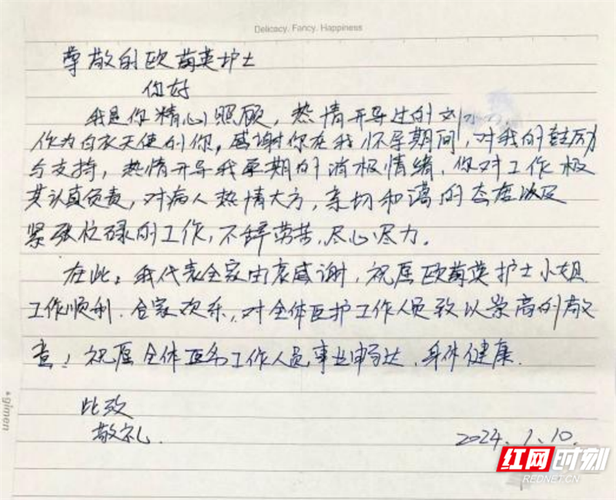 Delicacy, Fancy, Happiness
尊敬的欧菊英护士
你好
我是你精心照顾,热情开导过的刘
作为白衣天使的你,感谢你在我怀孕期间,对我的鼓励
与支持,热情开导我孕期的消极情绪,你对工作极
其认真负责,对病人热情大方,亲切和蔼的态度以及
紧张忙碌的工作,不辞劳苦,尽心尽力。
在此:我代表全家由衷感谢,祝愿欧菊英护士小姐
工作顺利.合家欢乐,对全体医护工作人员致以崇高的敬
意!祝愿全体医务工作人员事业畅达,身体健康.
此致
敬礼.
2024.1.10.
gimen
红网时刻
REDNET.CN